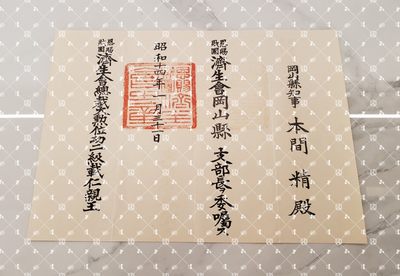 岡山縣知事 本間精殿
恩賜財團 濟生會岡山縣支部長ヲ委囑ス
昭和十四年一月三十一日
恩賜財團 濟生會總裁大勲位功二級載仁親王